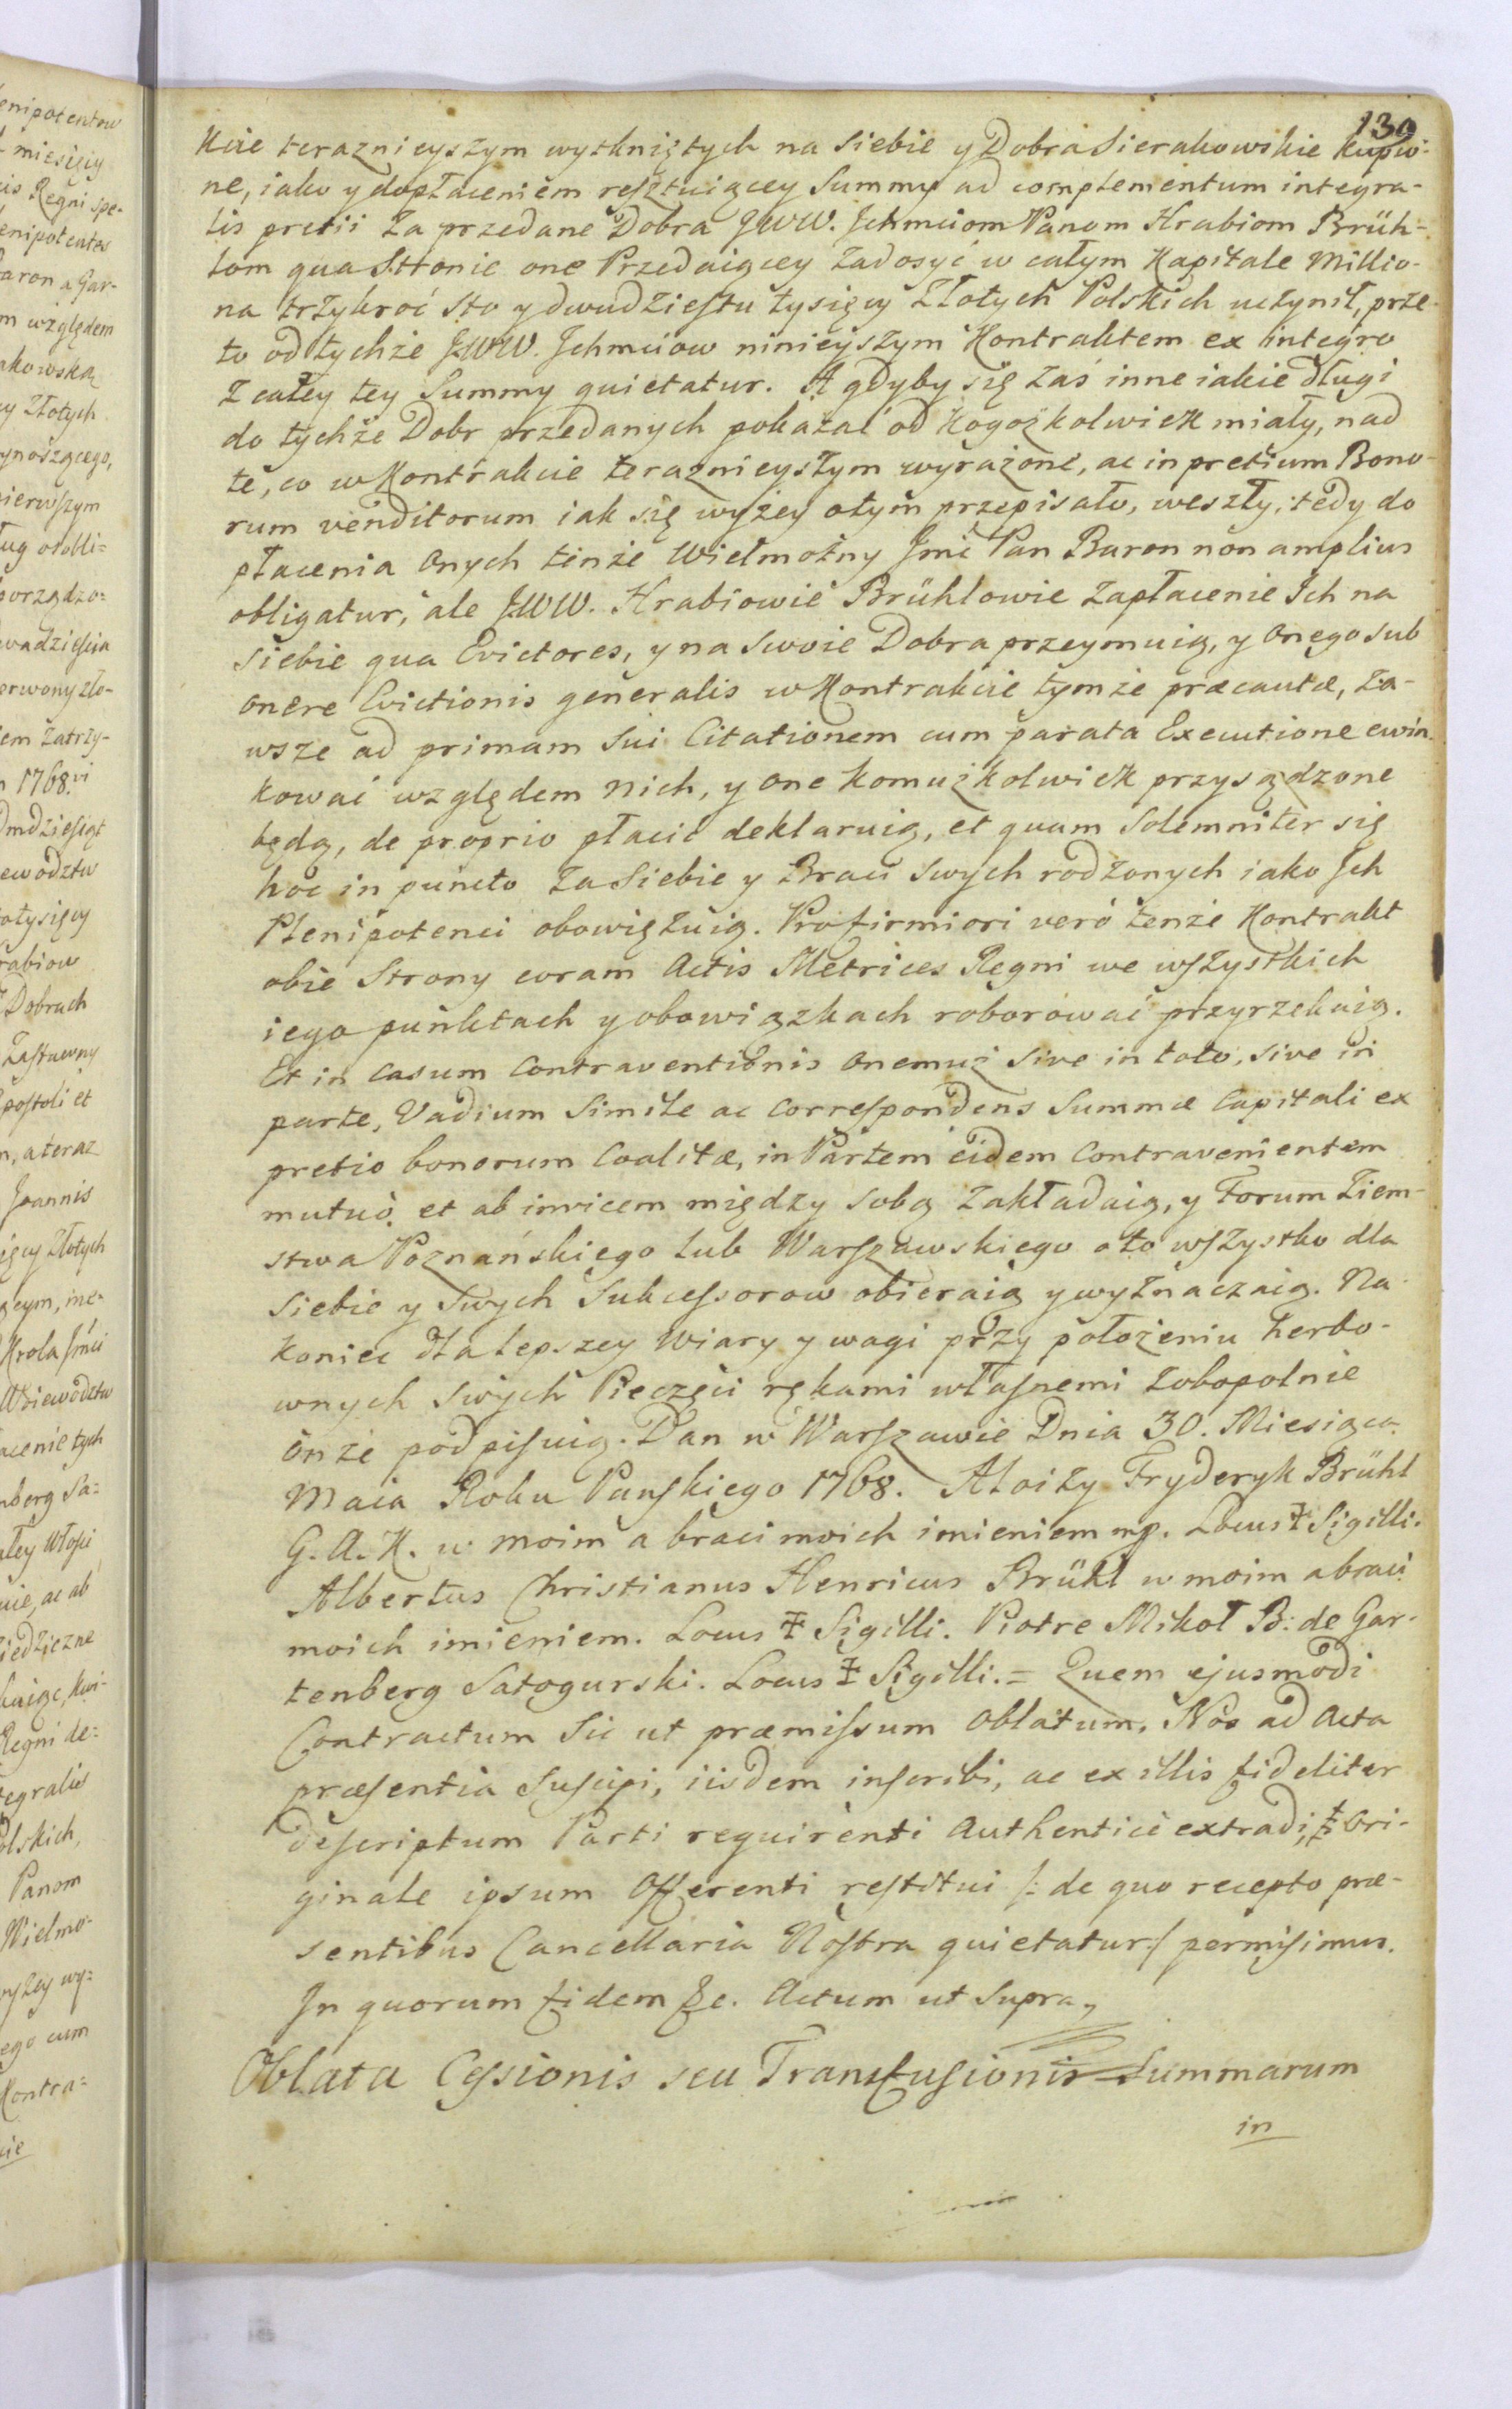 139
kcie teraznieyszym wytkniętych na Siebie y Dobra Sierakowskie kupio-
ne, iako y dopłaceniem resztuiącey Summy ad complementum integra-
lis pretii za przedane Dobra JWW. Ichmciom Panom Hrabiom Brüh-
lom qua Stronie one Przedaiącey zadosyć w całym Kapitale Millio-
na trzykroć sto y dwudziestu tysięcy Złotych Polskich uczynił, prze-
to od tychże JWW. Ichmciow ninieyszym Kontraktem ex integro
z całey tey Summy quietatur. A gdyby się zaś inne iakie długi
do tychże Dobr przedanych pokazać od kogożkolwiek miały, nad
te, co w Kontrakcie teraznieyszym wyrażone, ac in pretium Bono-
rum venditorum iak się wyżey o tym przepisało, weszły, tedy do
płacenia onych tenże Wielmożny Jmć Pan Baron non amplius
obligatur, ale JWW. Hrabiowie Brühlowie zapłacenie Ich na
siebie qua Evictores, y na swoie Dobra przeymuią, y onego sub
onere Evictionis generalis w Kontrakcie tymże præcautæ, za-
wsze ad primam sui Citationem cum parata Executione ewin-
kować względem nich, y one komużkolwiek przysądzone
będą, de proprio płacić deklaruią, et quam Solemniter się
hoc in puncto za Siebie y Braci swych rodzonych iako Ich
Plenipotenci obowięzuią. Pro firmiori verò tenże Kontrakt
obie Strony coram Actis Metrices Regni we wszystkich
iego punktach y obowiązkach roborować przyrzekaią.
Et in casum Contraventionis onemuż sive in toto, sive in
parte, Vadium Simile ac Correspondens Summæ Capitali ex
pretio bonorum Coalitæ, in Partem eidem Contravenientem
mutuò et ab invicem między sobą zakładaią, y Forum Ziem-
stwa Poznańskiego lub Warszawskiego o to wszystko dla
siebie y Swych Sukcessorow obieraią y wyznaczaią. Na
koniec dla lepszey Wiary y wagi przy położeniu herbo-
wnych Swych Pieczęci rękami własnemi zobopolnie
onże podpisuią. Dan w Warszawie Dnia 30. Miesiąca
Maia Roku Panskiego 1768. Aloizy Fryderyk Brühl
G. A. K. w moim a braci moich imieniem mp. Locus ‡ Sigilli.
Albertus Christianus Henricus Brühl w moim a braci
moich imieniem. Locus ‡ Sigilli. Piotre Mikoł B: de Gar-
tenberg Satogurski. Locus ‡ Sigilli. = Quem ejusmodi
Contractum Sic ut præmissum Oblatum, Nos ad Acta
præsentia Suscipi, iisdem inscribi, ac ex illis fideliter
descriptum Parti requirenti Authenticè extradi, & Ori-
ginale ipsum Offerenti restitui /: de quo recepto præ-
sentibus Cancellaria Nostra quietatur :/ permisimus.
In quorum fidem &c. Actum ut Supra,
Oblata Cessionis seu Transfusionis Summarum
in